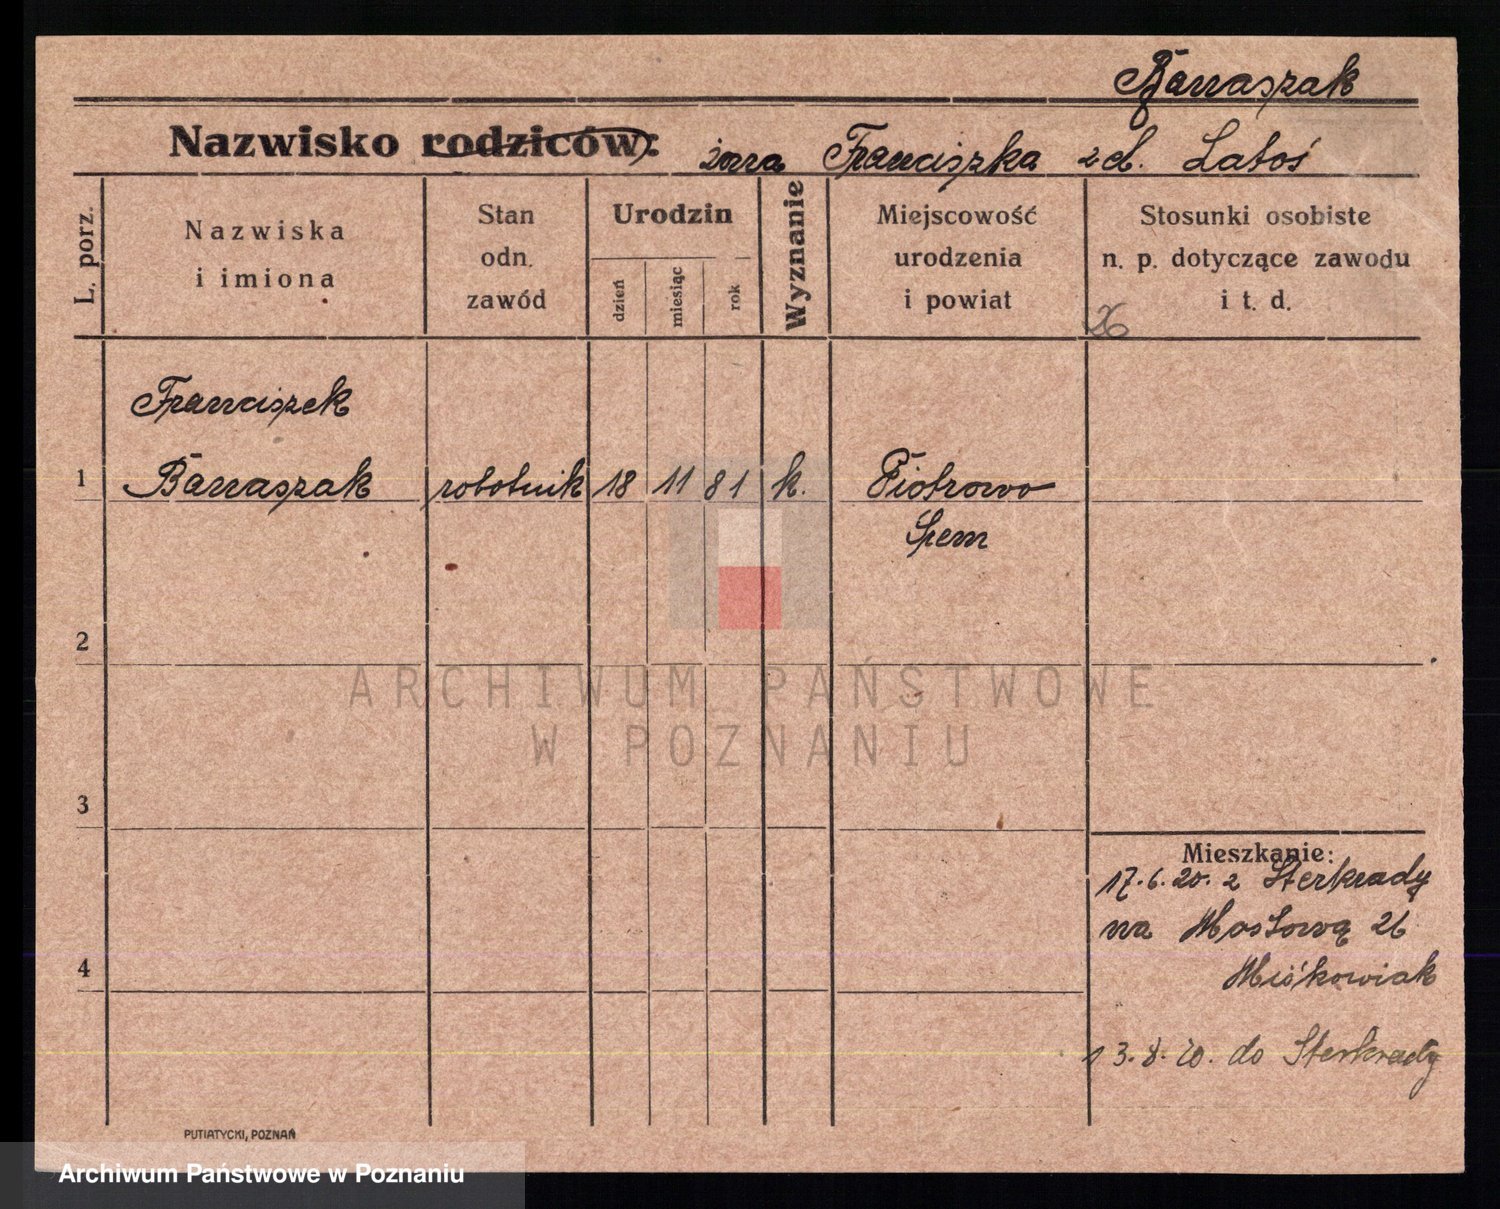 Banaszak
Nazwisko rodziców: żona Franciszka zd. Latoś
L. porz.
Nazwiska
i imiona
Stan
odn.
zawód
Urodzin
dzień
miesiąc
rok
Wyznanie
Miejscowość
urodzenia
i powiat
Stosunki osobiste
n. p. dotyczące zawodu
i t. d.
Franciszek
1 Banaszak robotnik 18 11 81 k. Piotrowo
Śrem
2
ARCHIWUM PAŃSTWOWE
W POZNANIU
3
Mieszkanie:
17.6.20. z Sterkrady
na Mostową 26
Miśkowiak
4
13.8.20. do Sterkrady
PUTIATYCKI, POZNAŃ
Archiwum Państwowe w Poznaniu